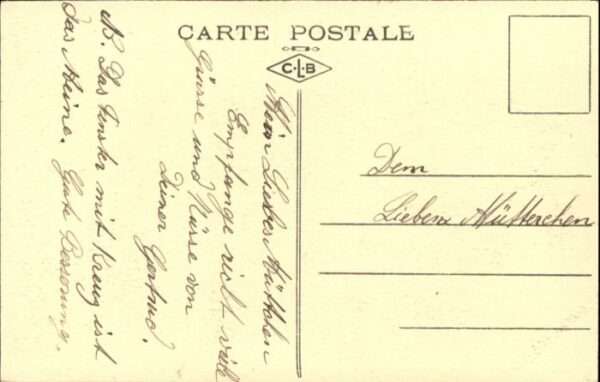 CARTE POSTALE
C·L·B
Mein Liebes Mutthen
Empfange recht viele
Grüsse und Küsse von
Deiner Gertrud.
NB. Das Fenster mit Kreuz ist
das Meine. Gute Besserung.
Dem
Lieben Mütterchen